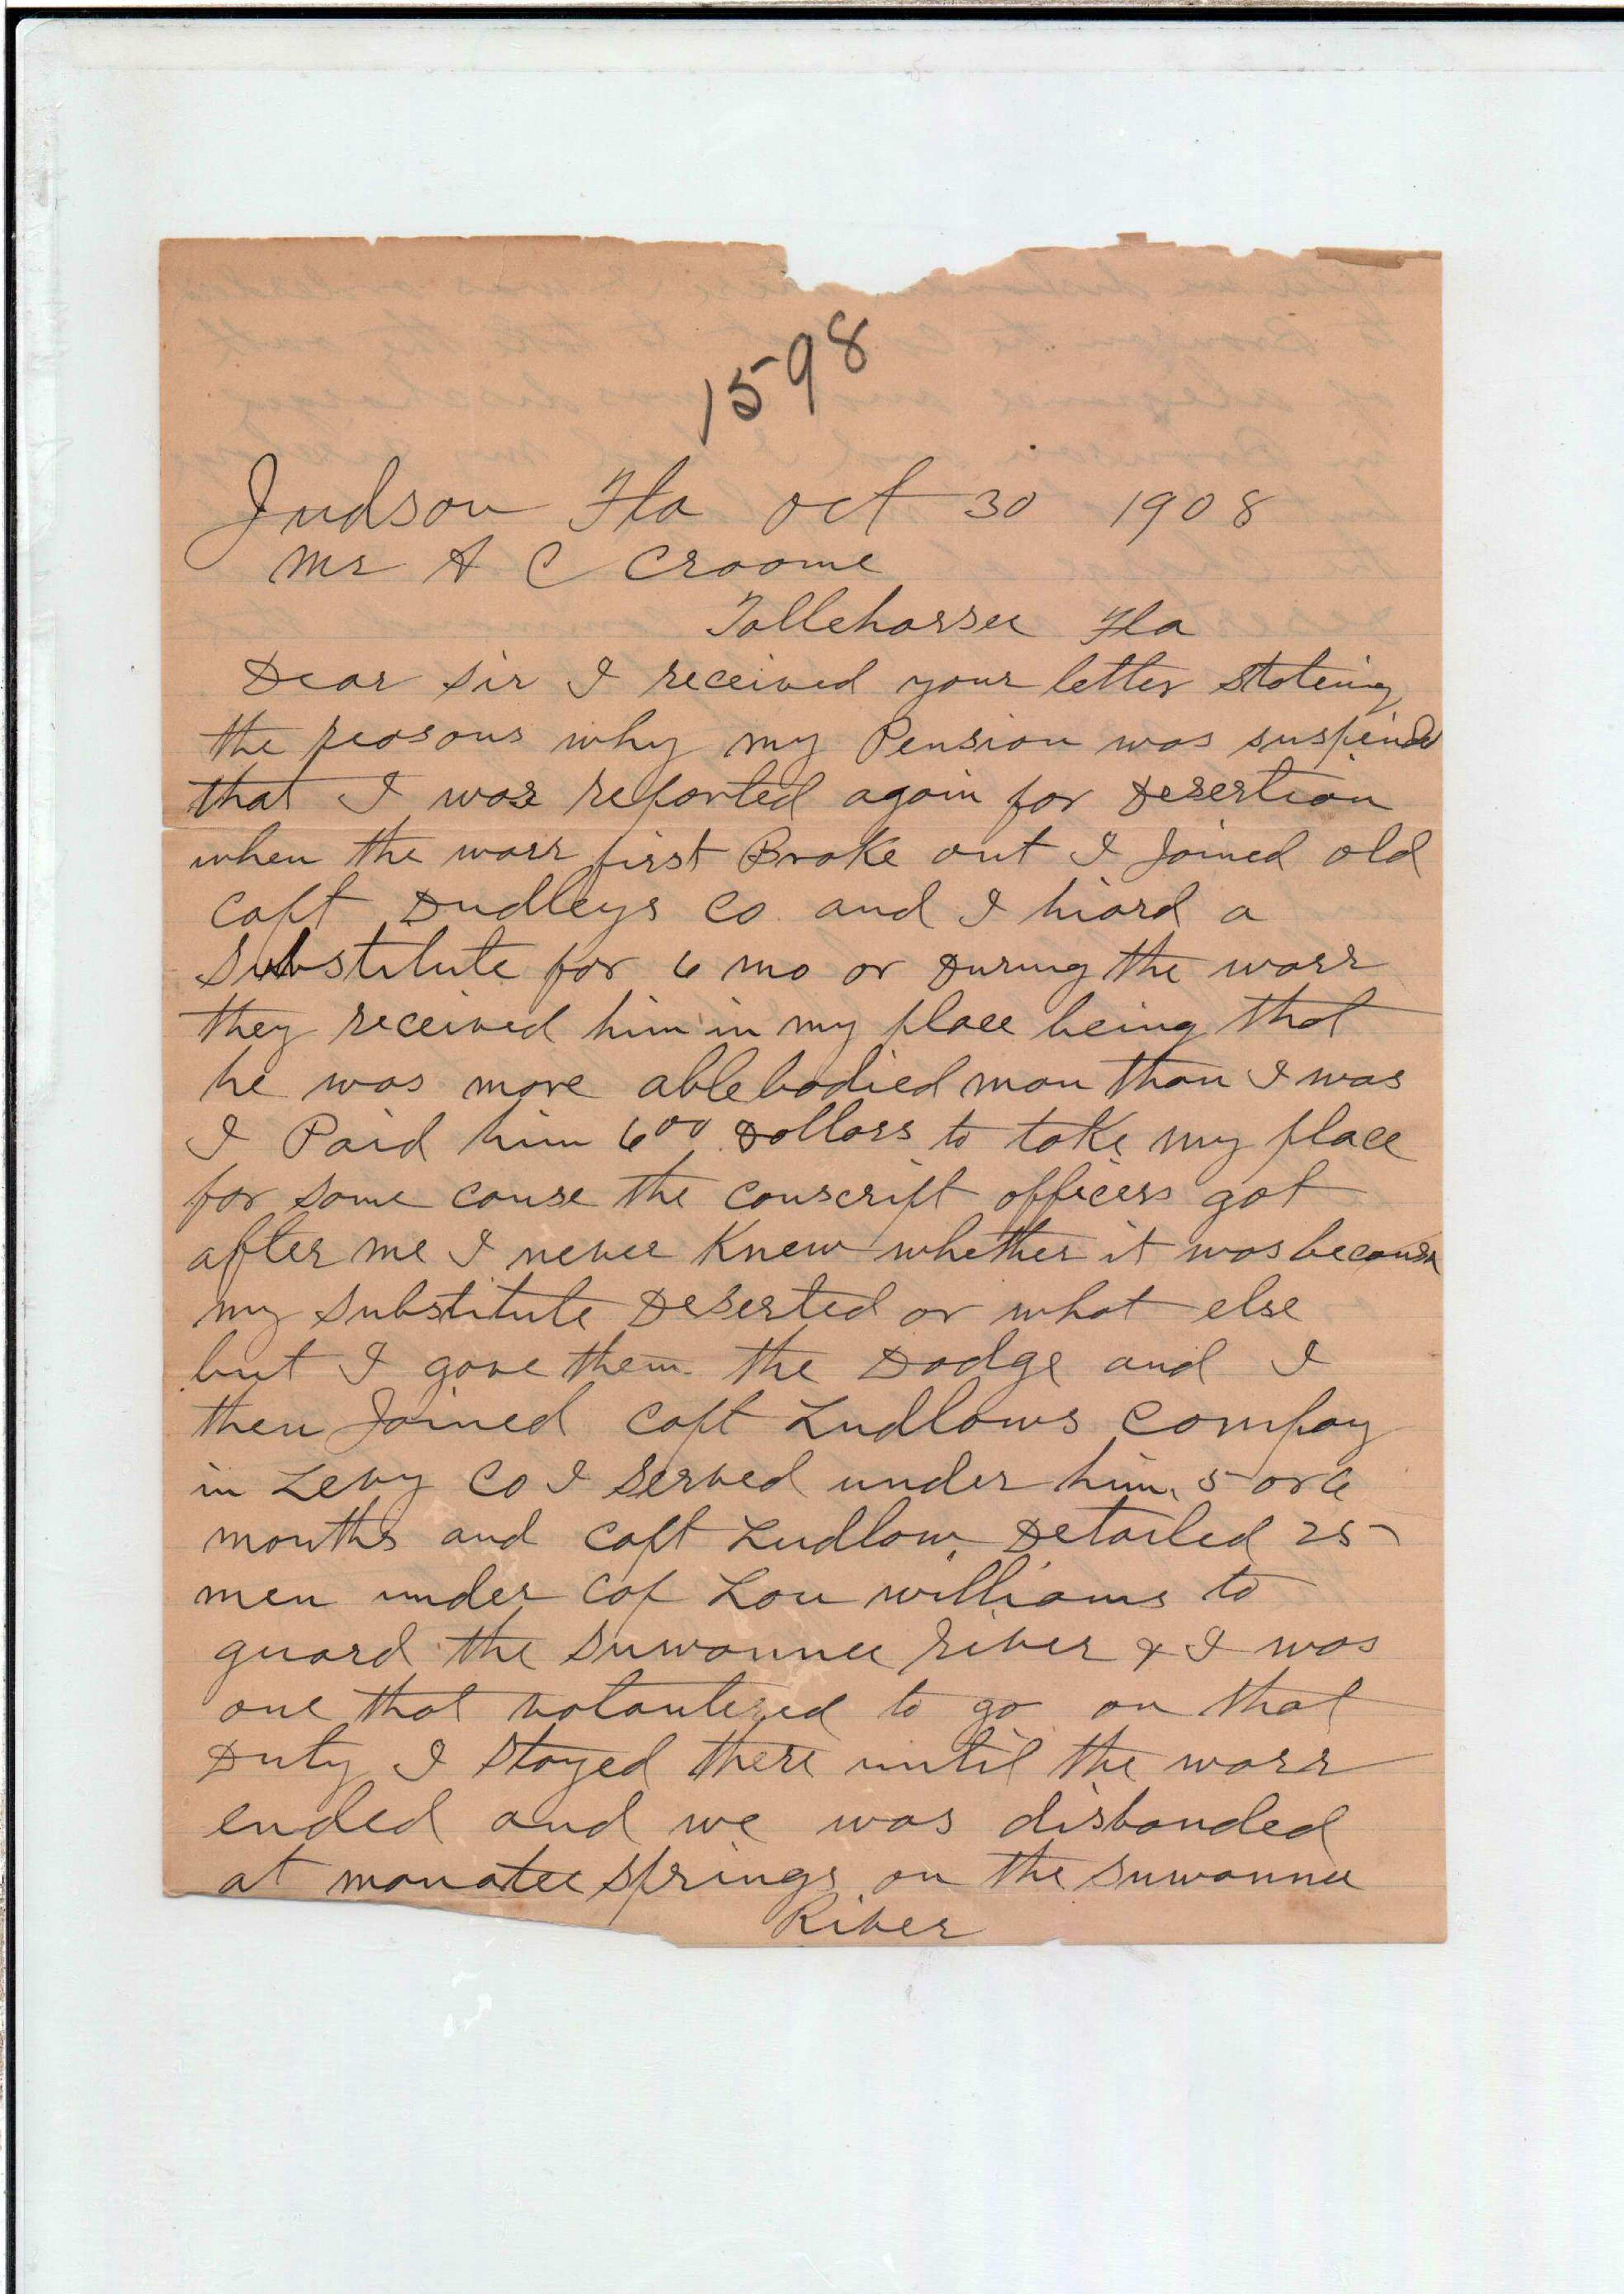 1598
Judson Fla oct 30 1908
Mr A C Croome
Tallehassee Fla
Dear Sir I received your letter stateing
the reasons why my Pension was suspended
that I was reported again for Desertion
when the warr first Broke out I Joined old
Capt Dudleys Co. and I hiard a
Substitute for 6 mo or During the warr
they received him in my place being that
he was more ablebodied man than I was
I Paid him 600 Dollars to take my place
for some cause the conscript officers got
after me I never Knew whether it was because
my substitute Deserted or what else
but I gave them the Dodge and I
then Joined Capt Ludlows Compay
in Levy Co I Served under him 5 or 6
months and Capt Ludlow Detailed 25
men under Cap Lou williams to
guard the Suwannee River & I was
one that volantered to go on that
Duty I Stayed there until the warr
ended and we was disbanded
at manatee Springs on the Suwannee
River